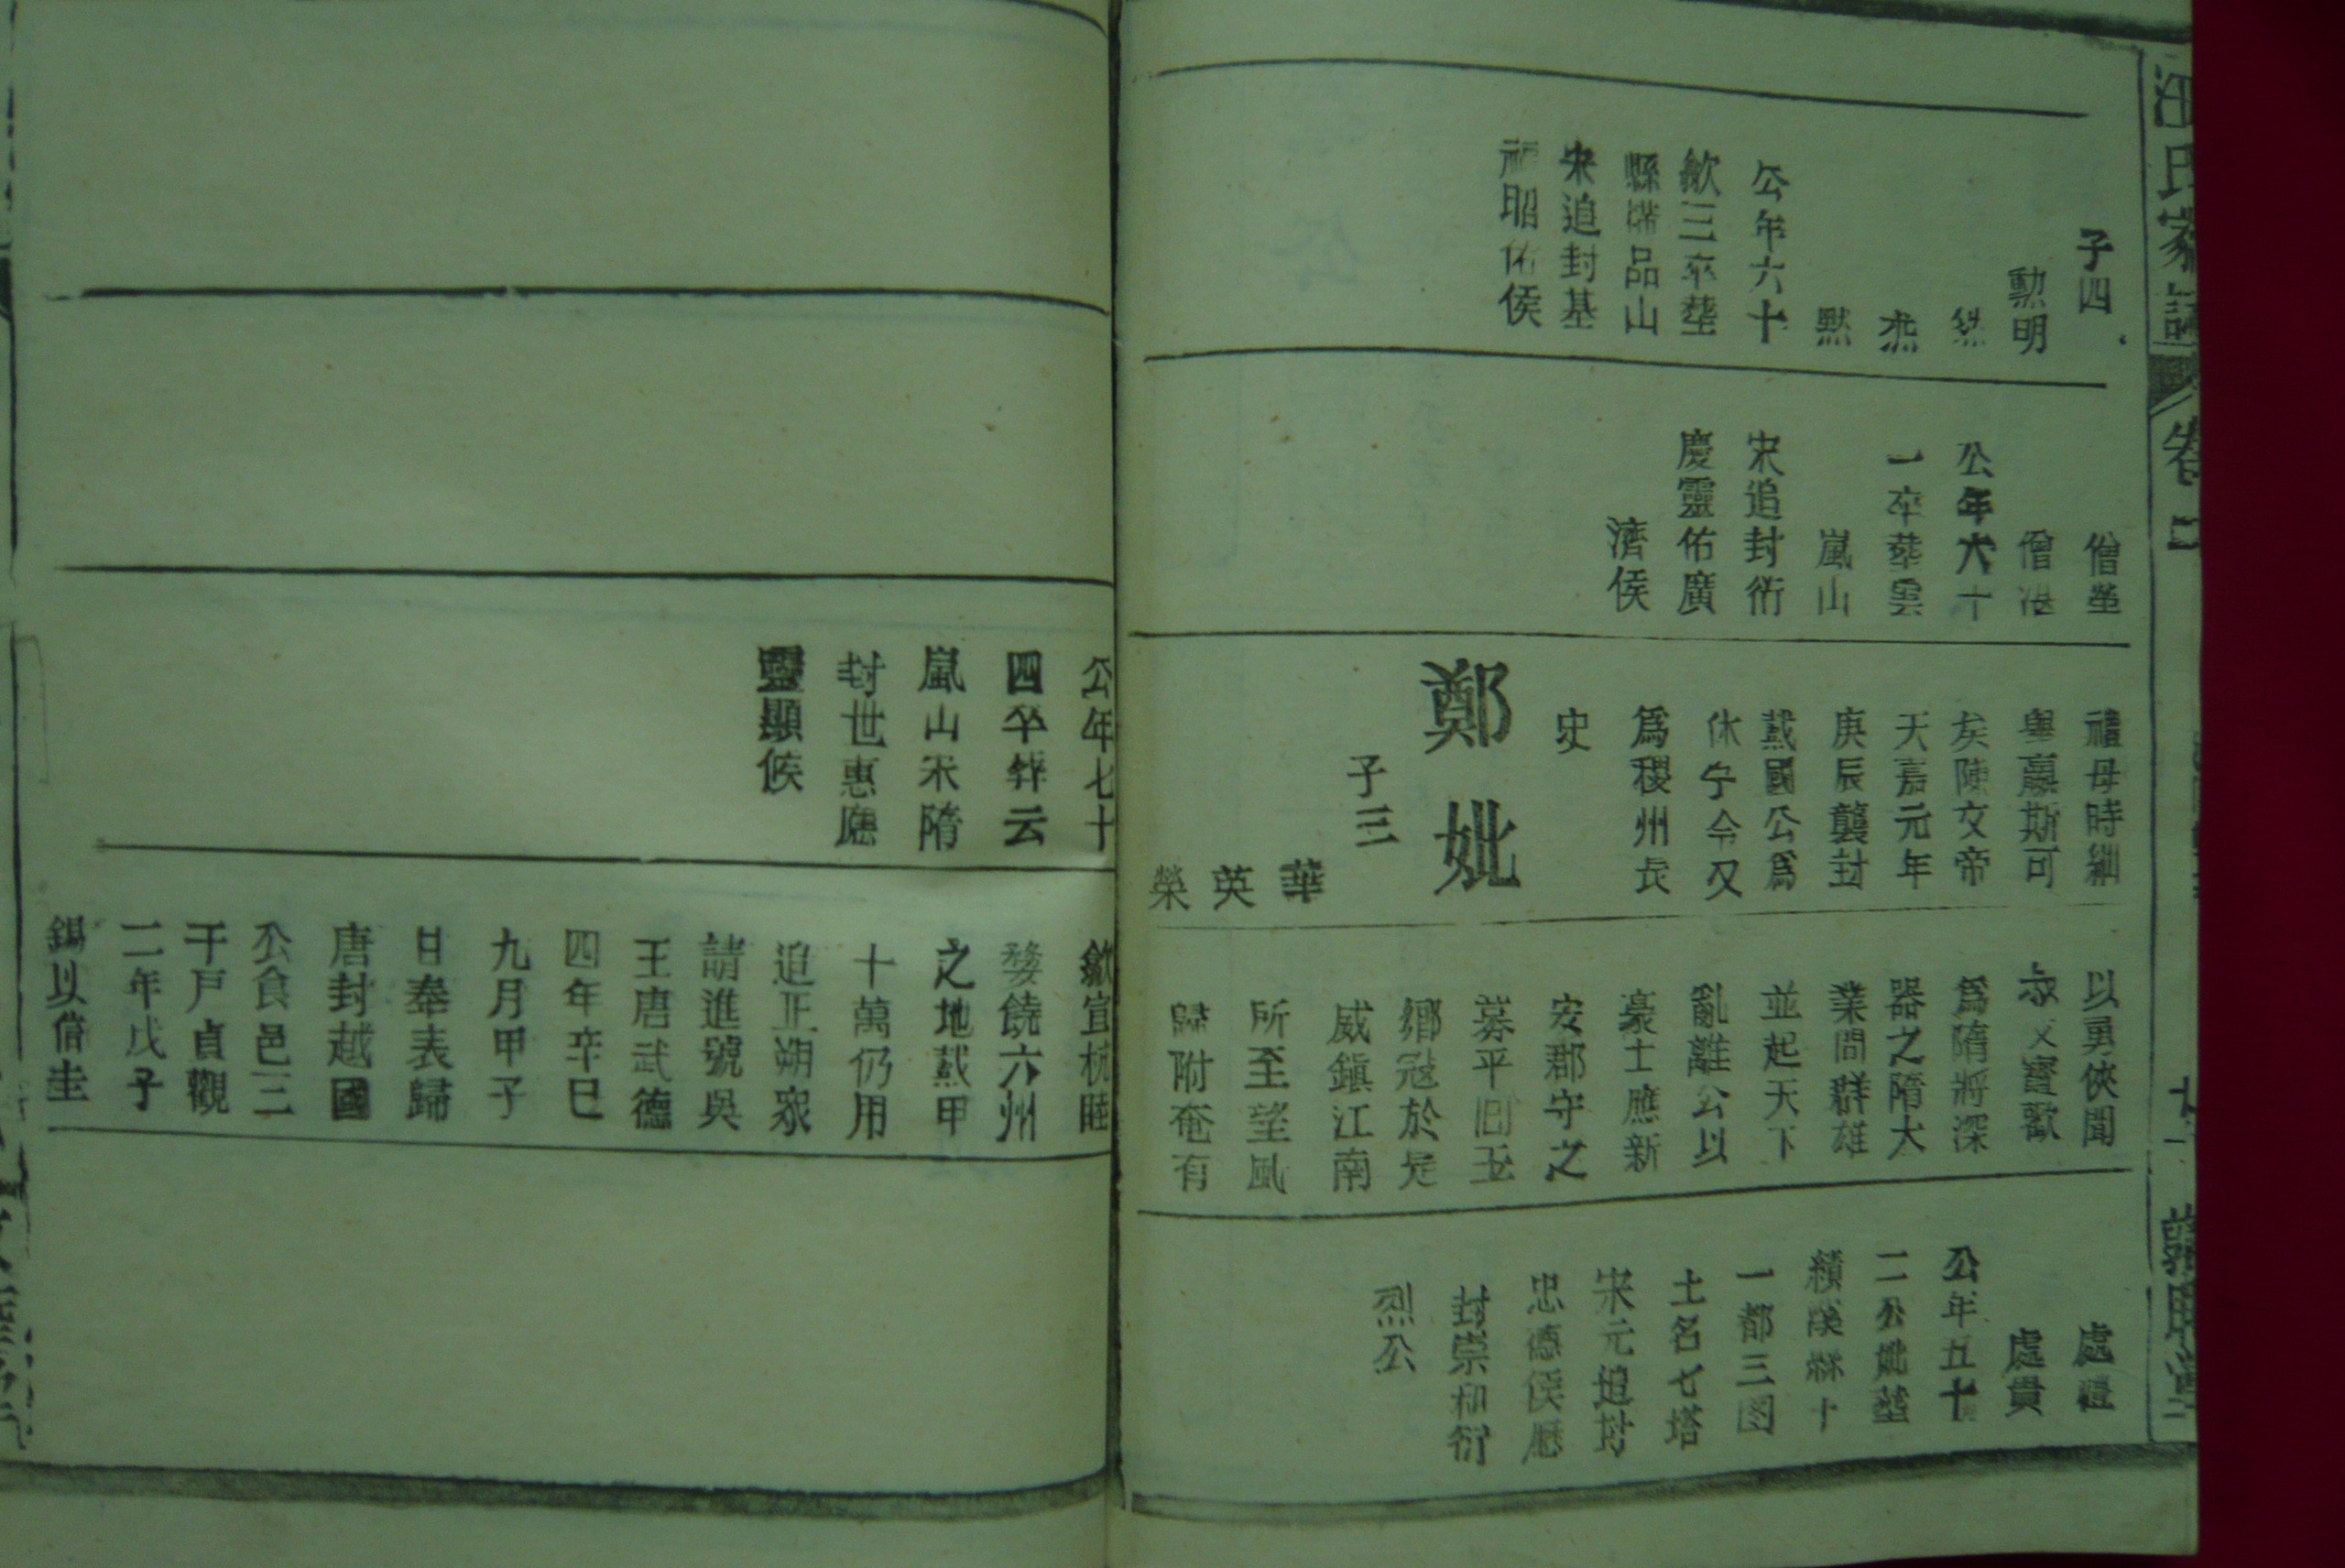 汪氏家譜
卷二
子四
勳明
默
公年六十
歙三卒塟
縣㙺品山
宋追封基
福昭佑侯
僧塋
僧湛
公年六十
一卒葬雲
嵐山
宋追封衍
慶靈佑廣
濟侯
禮母時緗
輿嬴斯可
矣陳文帝
天嘉元年
庚辰襲封
戴國公爲
休宁令又
爲稷州長
史
鄭妣
子三
華
英
榮
以勇俠聞
叔父寳歡
爲隋將深
器之隋大
業間群雄
並起天下
亂離公以
豪士應新
安郡守之
募平囘玉
鄉冦於是
威鎭江南
所至望風
歸附奄有
處禮
處貴
公年五十
二公妣塟
績溪縣十
一都三图
土名七塔
宋元追封
忠德侯歷
封崇和衍
烈公
公年七十
四卒葬云
嵐山宋隋
封世惠應
靈顯候
歙宣杭睦
婺饒六州
之地戴甲
十萬仍用
追正朔衆
請進號吳
王唐武德
四年辛巳
九月甲子
日奉表歸
唐封越國
公食邑三
千戸貞觀
二年戊子
錫以僃圭